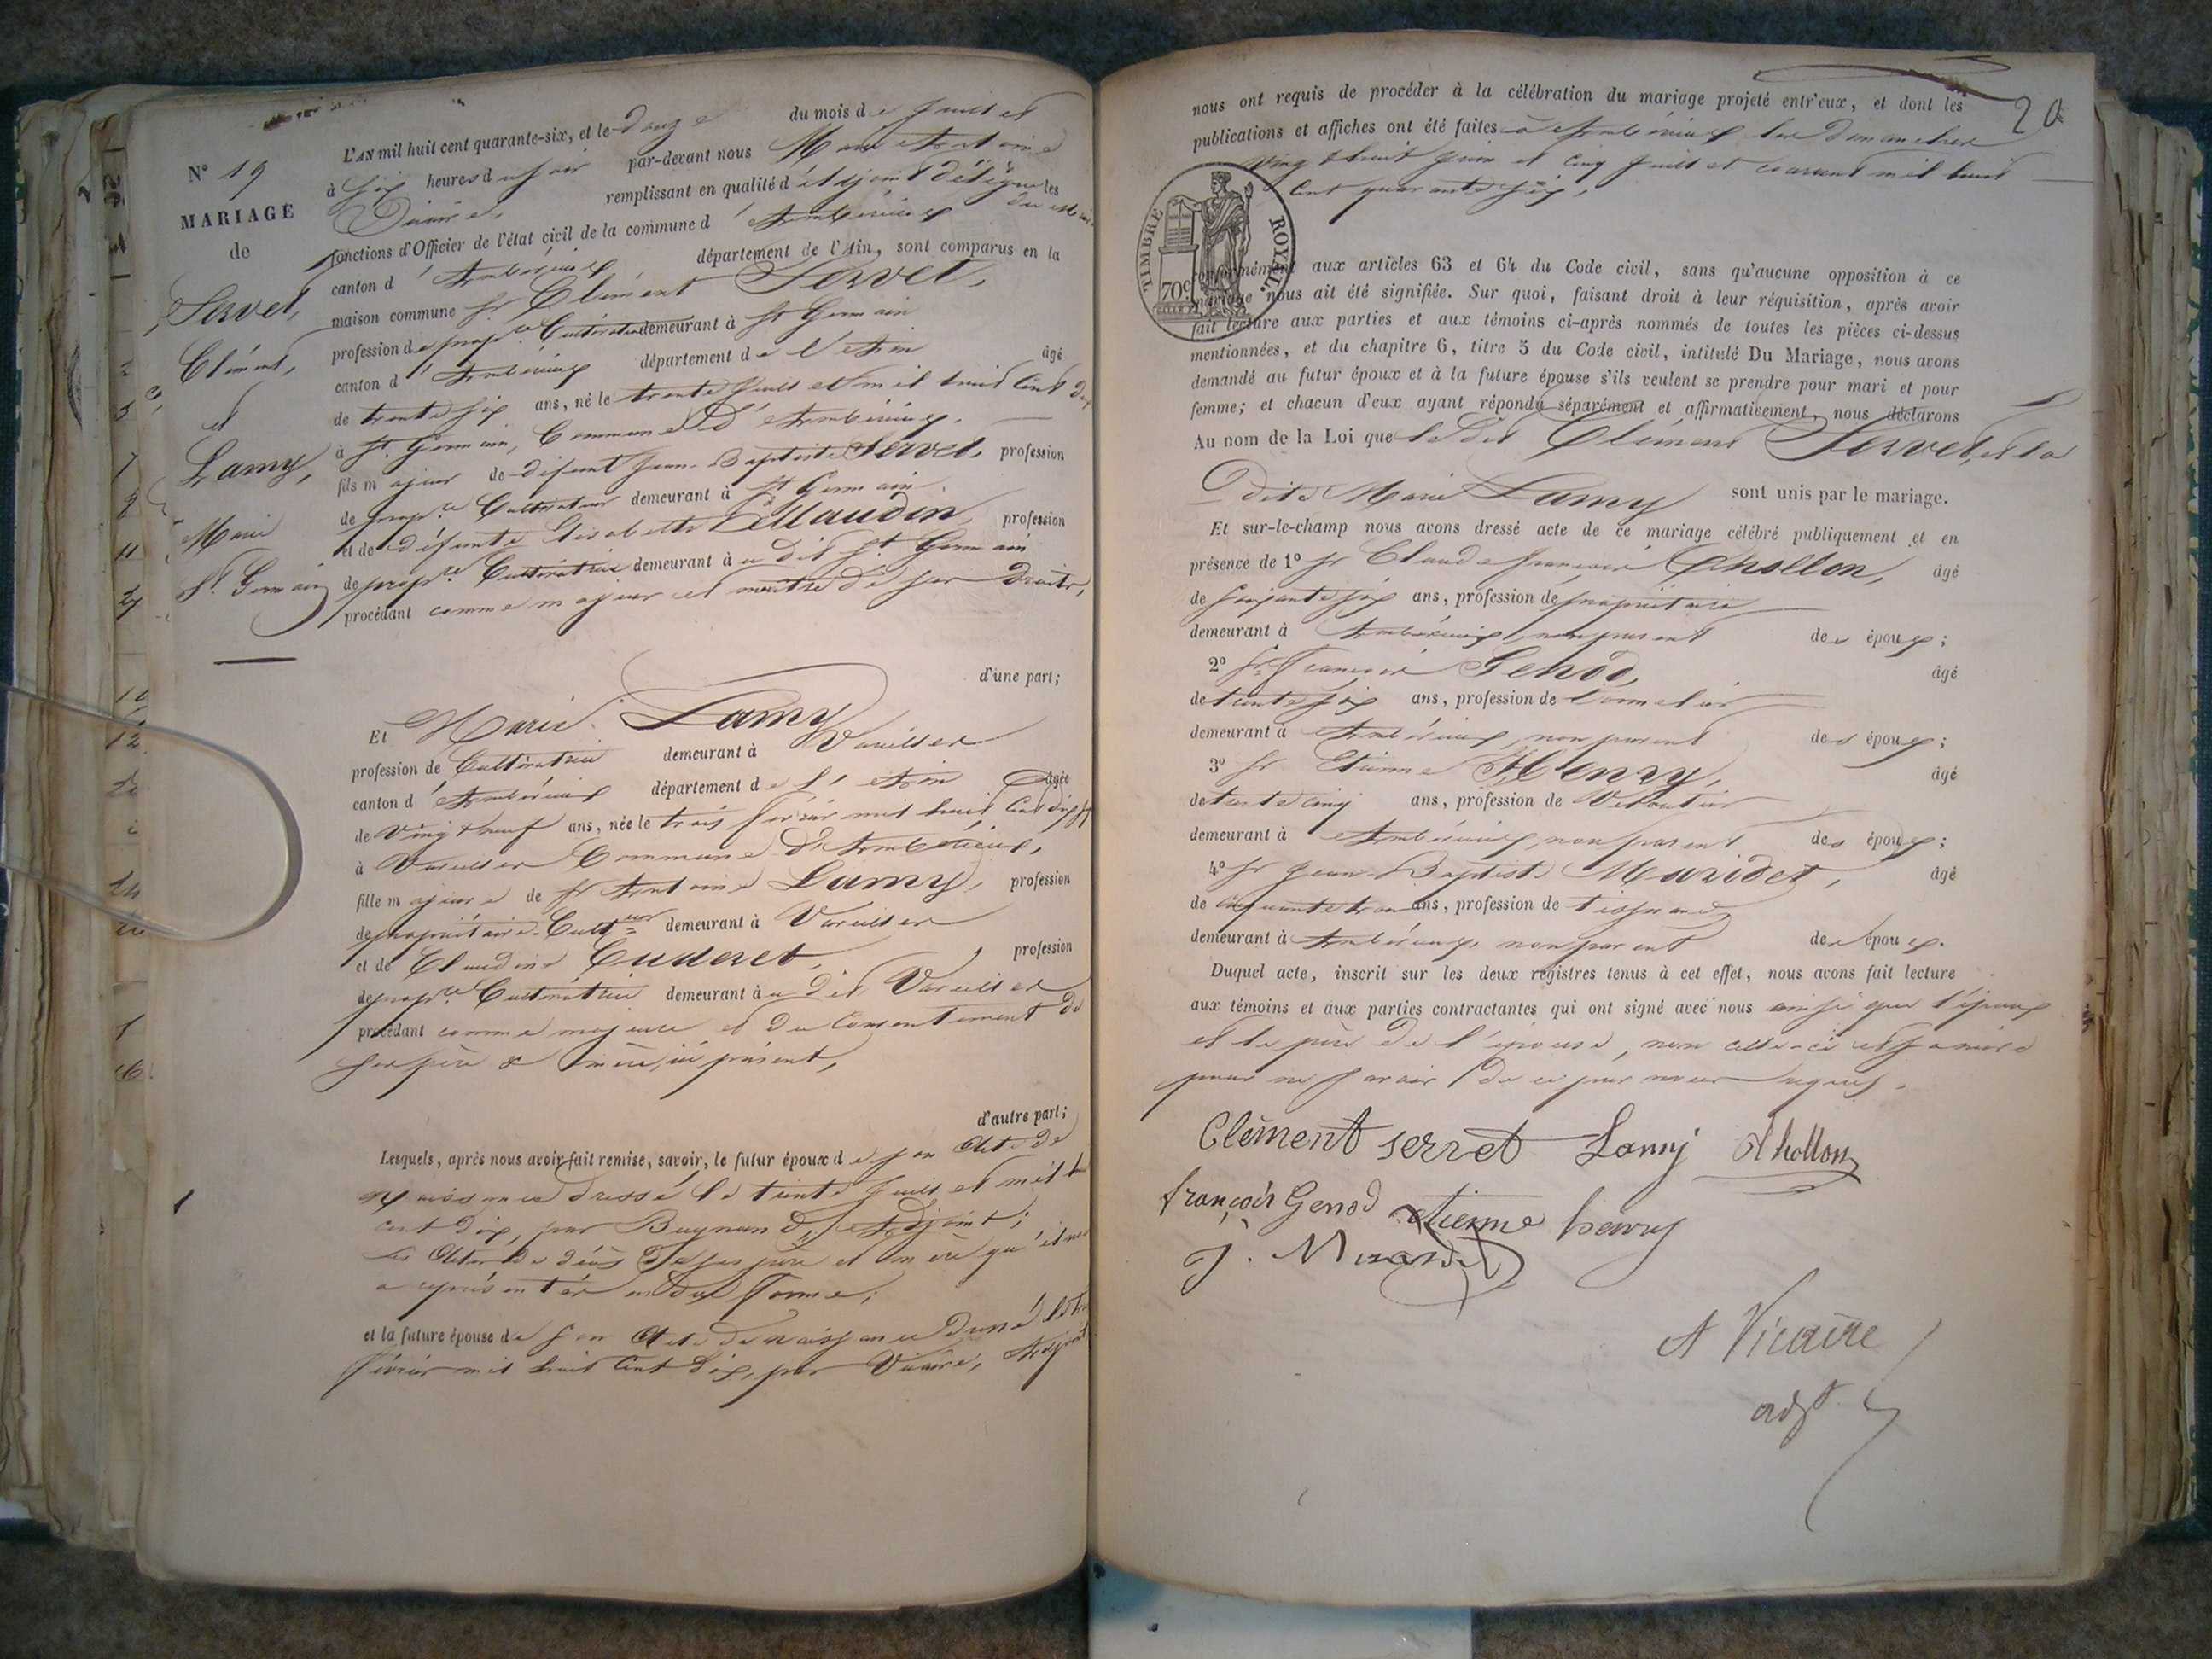 N° 19
MARIAGE
de
Servet,
Clément,
et
Lamy,
Marie
St. Germain
L'AN mil huit cent quarante-six, et le douze du mois de Juillet
à six heures du soir par-devant nous Marie Antoine
Vicaire, remplissant en qualité d'adjoint délégué les
fonctions d'Officier de l'état civil de la commune d'Ambérieux
canton d'Ambérieux département de l'Ain, sont comparus en la
maison commune Sr. Clément Servet,
profession de prop.re Cultivateur demeurant à St Germain
canton d'Ambérieux département de l'Ain âgé
de trente six ans, né le trente Juillet mil huit cent dix
à St. Germain, Commune d'Ambérieux,
fils majeur de défunt Jean-Baptiste Servet, profession
de prop.re Cultivateur demeurant à St Germain
et de défunte Elisabeth profession
de prop.re Cultivatrice demeurant à u dit St. Germain
procédant comme majeur et maître de ses droits,
d'une part;
Et Marie Lamy
profession de Cultivatrice demeurant à Vareilles
canton d'Ambérieux département de l'Ain âgée
de vingt neuf ans, née le trois février mil huit cent dix sept
à Vareilles Commune d'Ambérieux,
fille majeure de Sr Antoine Lamy, profession
de propriétaire-Cult.eur demeurant à Vareilles
et de Claudine Cuderet, profession
de prop.re Cultivatrice demeurant à u dit Vareilles
procédant comme majeure et du consentement de
ses père & mère, ici présent,
d'autre part;
Lesquels, après nous avoir fait remise, savoir, le futur époux de son acte de
naissance dressé le trente Juillet mil huit
cent dix, par Adjoint;
Les Actes de décès de ses père et mère qu'il nous
a représenter en due forme;
et la future épouse de son acte de naissance dressé le trois
février mil huit cent dix, par Vicaire, Adjoint
20
nous ont requis de procéder à la célébration du mariage projeté entr'eux, et dont les
publications et affiches ont été faites à Ambérieux les dimanches
vingt huit Juin et cinq Juillet courant mil huit
cent quarante six,
TIMBRE ROYAL.
70c
conformément aux articles 63 et 64 du Code civil, sans qu'aucune opposition à ce
mariage nous ait été signifiée. Sur quoi, faisant droit à leur réquisition, après avoir
fait lecture aux parties et aux témoins ci-après nommés de toutes les pièces ci-dessus
mentionnées, et du chapitre 6, titre 5 du Code civil, intitulé Du Mariage, nous avons
demandé au futur époux et à la future épouse s'ils veulent se prendre pour mari et pour
femme; et chacun d'eux ayant répondu séparément et affirmativement, nous déclarons
Au nom de la Loi que le dit Clément Servet, et la
dite Marie Lamy sont unis par le mariage.
Et sur-le-champ nous avons dressé acte de ce mariage célébré publiquement et en
présence de 1° Sr Claude françois Chollon, âgé
de soixante six ans, profession de propriétaire
demeurant à Ambérieux, non parent des époux;
2° Sr françois Genod, âgé
de trente six ans, profession de tonnelier
demeurant à Ambérieux, non parent des époux;
3° Sr Etienne Henry, âgé
de trente cinq ans, profession de
demeurant à Ambérieux, non parent des époux;
4° Sr Jean-Baptiste âgé
de cinquante trois ans, profession de tisserand
demeurant à Ambérieux, non parent des époux.
Duquel acte, inscrit sur les deux registres tenus à cet effet, nous avons fait lecture
aux témoins et aux parties contractantes qui ont signé avec nous ainsi que l'époux
et le père de l'épouse, non celle-ci et sa mère
pour ne savoir de ce par nous requis.
Clément servet Lamy Chollon
françois Genod Etienne henry
J.
A Vicaire
adjt